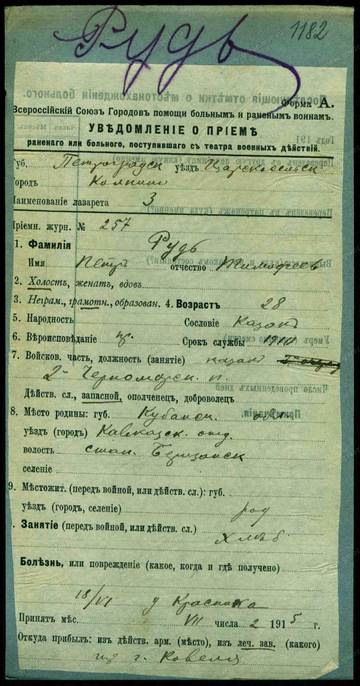 Рудь
1182
Форма А.
Всероссійскій Союзъ Городовъ помощи больнымъ и раненымъ воинамъ.
УВѢДОМЛЕНІЕ О ПРІЕМѢ
раненаго или больного, поступившаго съ театра военныхъ дѣйствій.
Губ. Петроградск уѣздъ Царскосельск
Городъ Колпино
Наименованіе лазарета 3
Пріемн. журн. № 257
1. Фамилія Рудь
Имя Петръ отчество Тимофеев
2. Холостъ, женатъ, вдовъ
3. Неграм., грамотн., образован. 4. Возрастъ 28
5. Народность Сословіе Казакъ
6. Вѣроисповѣданіе пр. Срокъ службы 1910
7. Войсков. часть, должность (занятіе) казакъ
2- Черноморск. п.
Дѣйств. сл., запасной, ополченецъ, доброволецъ
8. Мѣсто родины: губ. Кубанск. обл
уѣздъ (городъ) Кавказск. отд.
волость стан.
селеніе
9. Мѣстожит. (передъ войной, или дѣйств. сл.): губ.
уѣздъ (городъ, селеніе) род
Занятіе (передъ войной, или дѣйств. сл.)
Хлѣб.
Болѣзнь, или поврежденіе (какое, когда и гдѣ получено)
18/VI у
Принятъ мѣс. VII числа 2 1915 г.
Откуда прибылъ: изъ дѣйств. арм. (мѣсто), изъ леч. зав. (какого)
из г. Ковеля